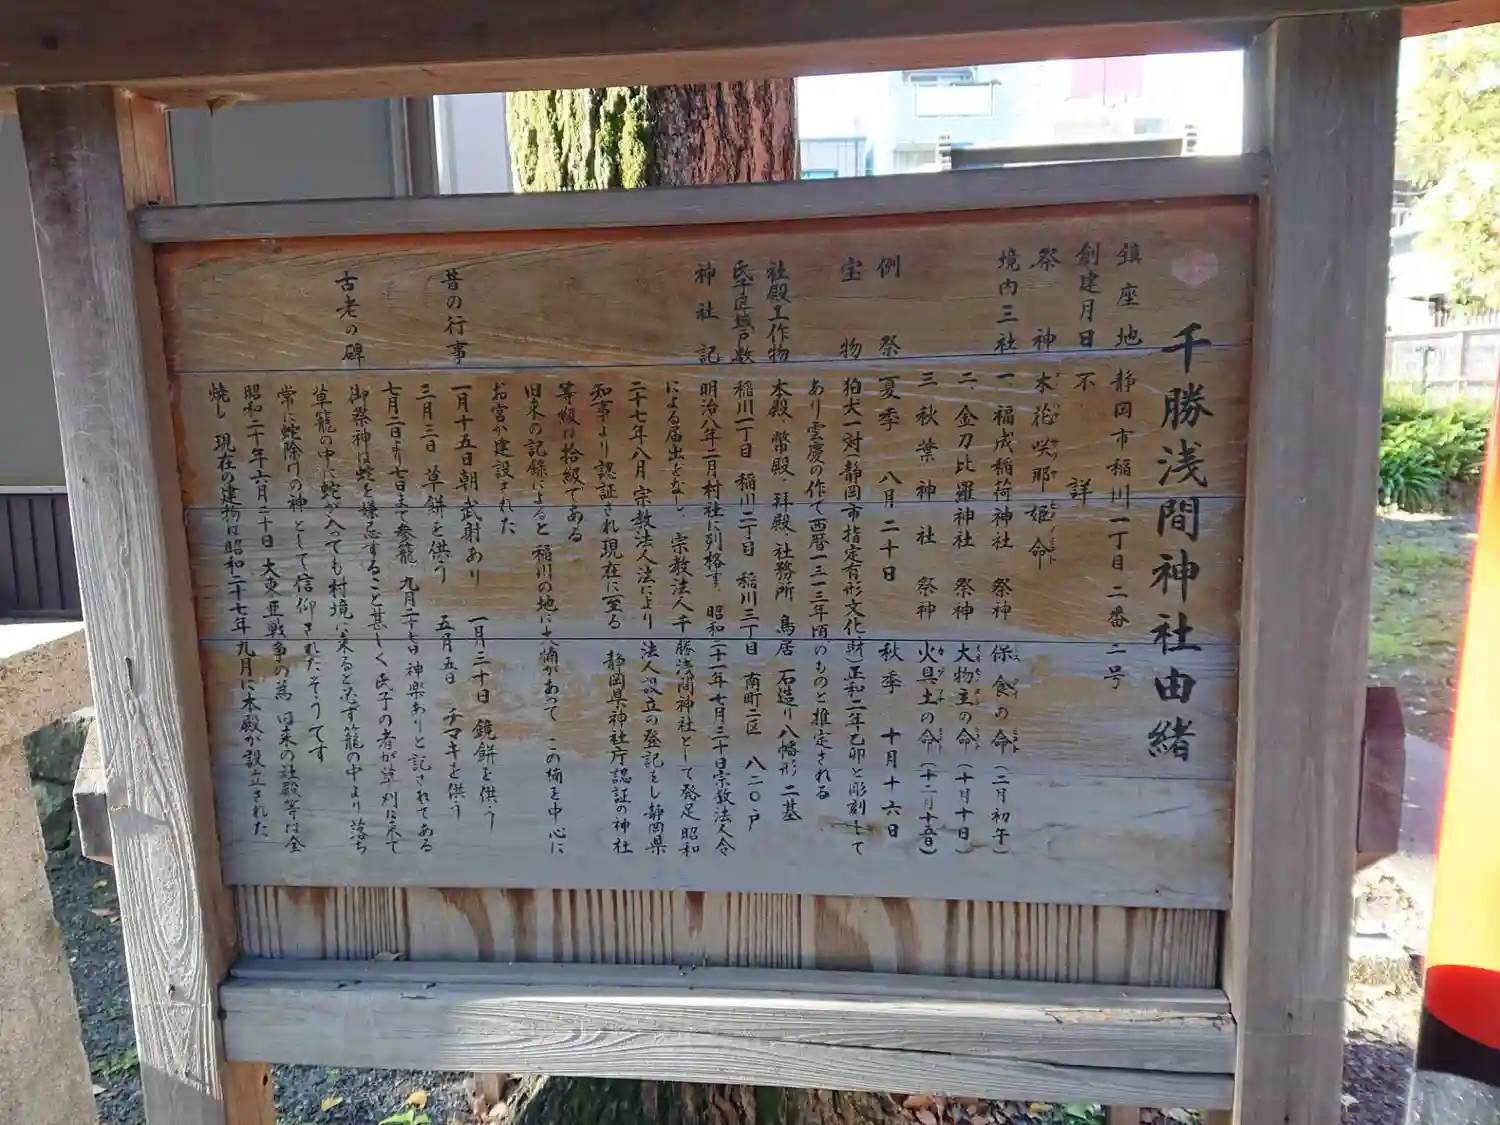 千勝浅間神社由緒
鎮座地 静岡市稲川一丁目二番二号
創建月日 不詳
祭神 木花咲耶姫命
境内三社 一、福成稲荷神社 祭神 保食の命(二月初午)
二、金刀比羅神社 祭神 大物主の命(十月十日)
三、秋葉神社 祭神 火具土の命(十二月十五日)
例祭 夏季 八月二十日 秋季 十月十六日
宝物 狛犬一対(静岡市指定有形文化財)正和二年乙卯と彫刻して
あり雲慶の作で西暦一三一三年頃のものと推定される
社殿工作物 本殿、幣殿、拝殿、社務所 鳥居 石造り八幡形 二基
氏子区域戸数 稲川一丁目 稲川二丁目 稲川三丁目 南町二区 八二〇戸
神社記 明治八年二月村社に列格す、昭和二十一年七月三十日宗教法人令
による届出をなし、宗教法人千勝浅間神社として発足昭和
二十七年八月宗教法人法により 法人設立の登記をし静岡県
知事より認証され現在に至る 静岡県神社庁認証の神社
等級は拾級である
旧来の記録によると 稲川の地に大楠があって この楠を中心に
お宮が建設された
昔の行事 一月十五日朝武射あり 一月三十日 鏡餅を供う
三月三日 草餅を供う 五月五日 チマキを供う
七月二日より七日まで参籠 九月二十七日神楽ありと記されてある
古老の碑 御祭神は蛇を嫌忌すること甚しく氏子の者が草刈に来て
草籠の中に蛇が入っても村境に来ると必ず籠の中より落ち
常に蛇除けの神として信仰されたそうです
昭和二十年六月二十日 大東亜戦争の為 旧来の社殿等は全
焼し 現在の建物は昭和二十七年九月に本殿が設立された